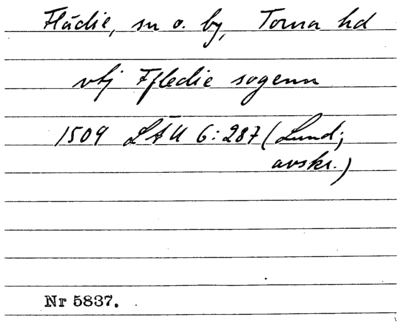 Flädie, sn o. by, Torna hd
vbj Ffledie sogenn
1509 LÄU 6:287 (Lund;
avskr.)
Nr 5837.